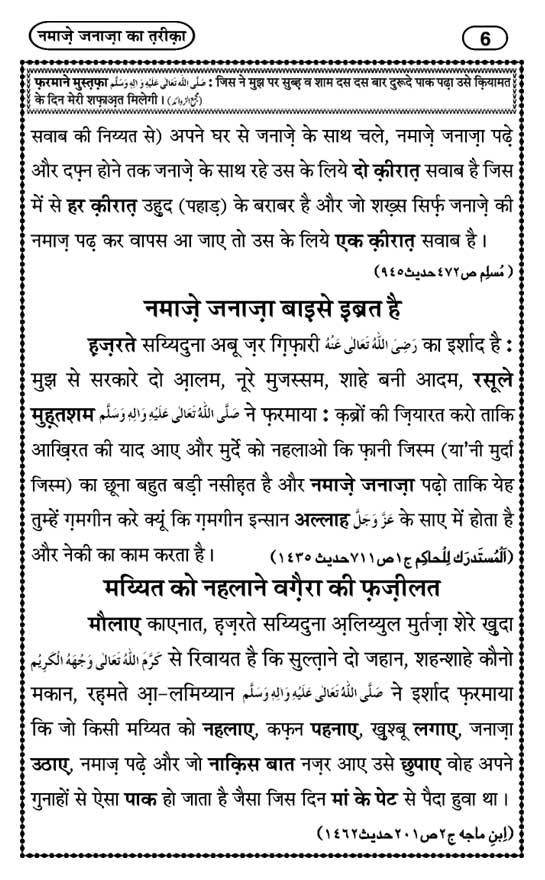 नमाज़े जनाज़ा का त़रीक़ा
6
फ़रमाने मुस्त़फ़ा صَلَّى اللّٰهُ تَعَالٰى عَلَيْهِ وَاٰلِهٖ وَسَلَّم : जिस ने मुझ पर सुब्ह़ व शाम दस दस बार दुरूदे पाक पढ़ा उसे क़ियामत
के दिन मेरी शफ़ाअ़त मिलेगी। (مجمع الزوائد)
सवाब की निय्यत से) अपने घर से जनाज़े के साथ चले, नमाज़े जनाज़ा पढ़े
और दफ़्न होने तक जनाज़े के साथ रहे उस के लिये दो क़ीरात़ सवाब है जिस
में से हर क़ीरात़ उह़ुद (पहाड़) के बराबर है और जो शख़्स सिर्फ़ जनाज़े की
नमाज़ पढ़ कर वापस आ जाए तो उस के लिये एक क़ीरात़ सवाब है।
(مُسلِم ص٤٧٢حديث٩٤٥)
नमाज़े जनाज़ा बाइसे इ़ब्रत है
ह़ज़रते सय्यिदुना अबू ज़र ग़िफ़ारी رَضِیَ اللّٰهُ تَعَالٰی عَنْهُ का इर्शाद है :
मुझ से सरकारे दो आ़लम, नूरे मुजस्सम, शाहे बनी आदम, रसूले
मुह़्तशम صَلَّى اللّٰهُ تَعَالٰى عَلَيْهِ وَاٰلِهٖ وَسَلَّم ने फ़रमाया : क़ब्रों की ज़ियारत करो ताकि
आख़िरत की याद आए और मुर्दे को नहलाओ कि फ़ानी जिस्म (या'नी मुर्दा
जिस्म) का छूना बहुत बड़ी नसीह़त है और नमाज़े जनाज़ा पढ़ो ताकि येह
तुम्हें ग़मगीन करे क्यूं कि ग़मगीन इन्सान अल्लाह عَزَّوَجَلَّ के साए में होता है
और नेकी का काम करता है। (اَلْمُستَدرَك لِلْحاكِم ج١ص٧١١حديث ١٤٣٥)
मय्यित को नहलाने वग़ैरा की फ़ज़ीलत
मौलाए काएनात, ह़ज़रते सय्यिदुना अ़लिय्युल मुर्तज़ा शेरे ख़ुदा
كَرَّمَ اللّٰهُ تَعَالٰى وَجْهَهُ الْكَرِيْم से रिवायत है कि सुल्त़ाने दो जहान, शहन्शाहे कौनो
मकान, रह़मते आ़-लमिय्यान صَلَّى اللّٰهُ تَعَالٰى عَلَيْهِ وَاٰلِهٖ وَسَلَّم ने इर्शाद फ़रमाया
कि जो किसी मय्यित को नहलाए, कफ़न पहनाए, ख़ुश्बू लगाए, जनाज़ा
उठाए, नमाज़ पढ़े और जो नाक़िस बात नज़र आए उसे छुपाए वोह अपने
गुनाहों से ऐसा पाक हो जाता है जैसा जिस दिन मां के पेट से पैदा हुवा था।
(اِبنِ ماجه ج٢ص٢٠١حديث١٤٦٢)